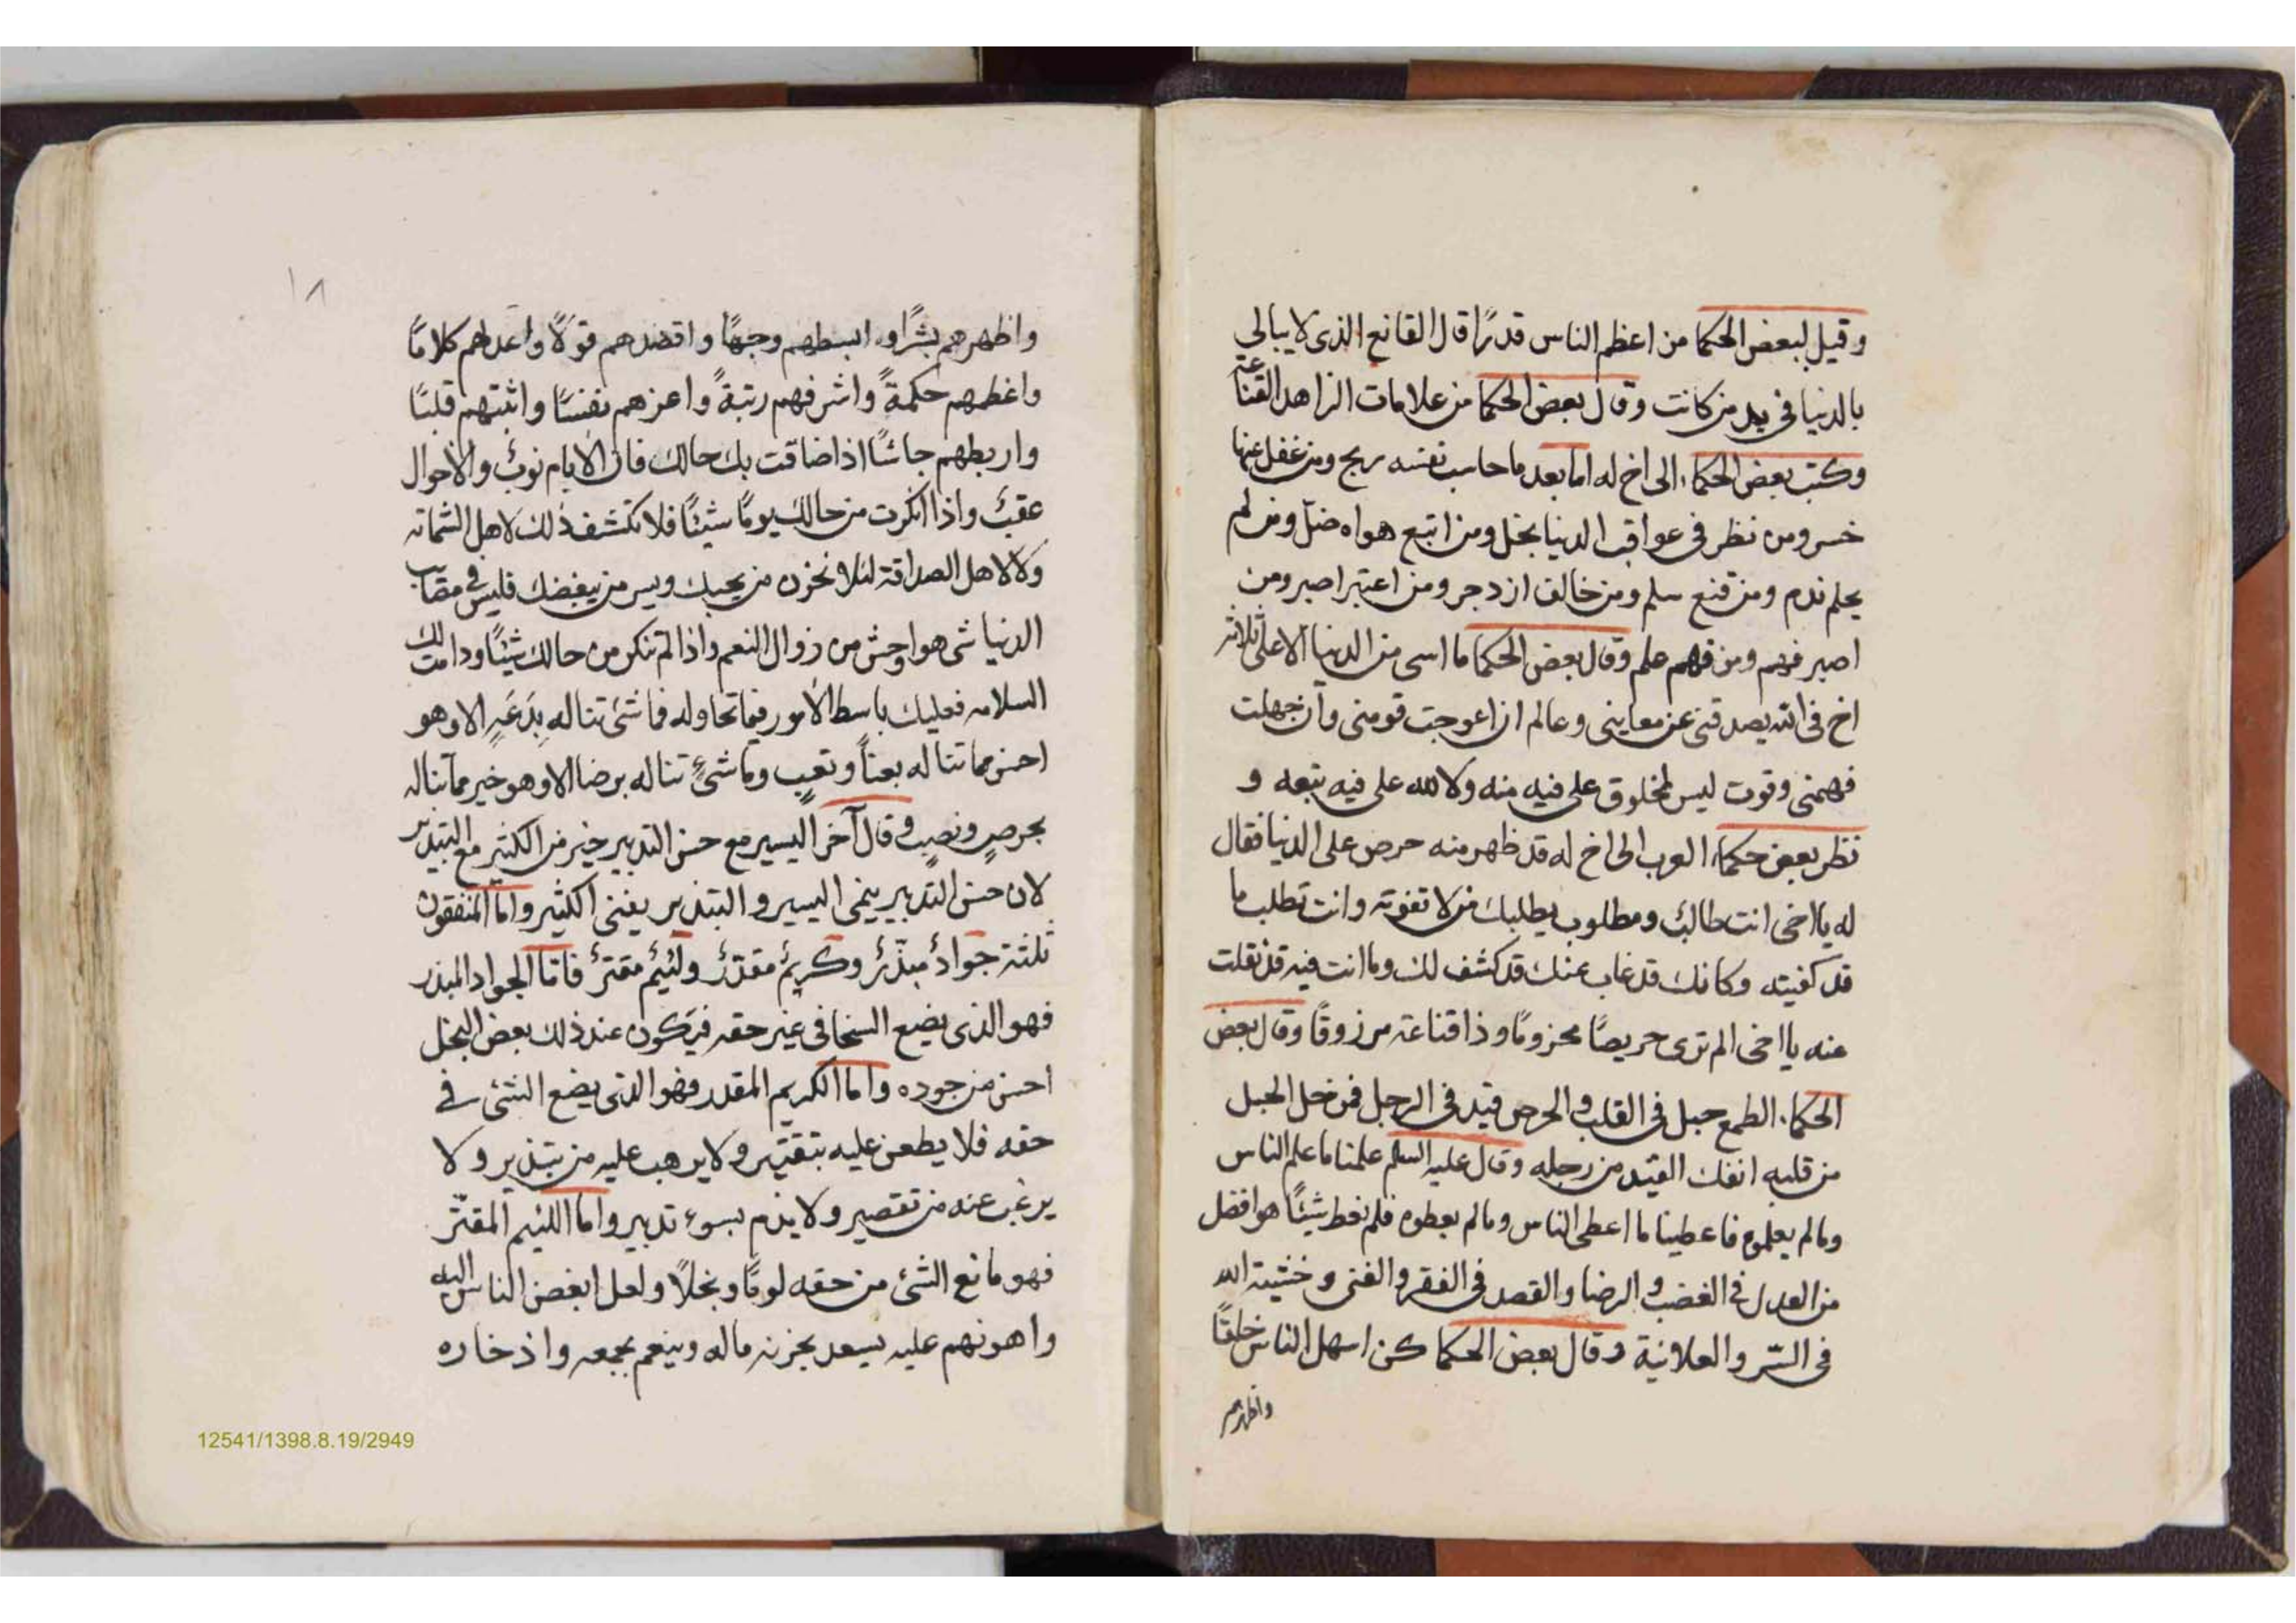 وقيل لبعض الحكما من اعظم الناس قدرًا قال القانع الذى لا يبالى
بالدنيا فى يد من كانت وقال بعض الحكما من علامات الزاهد القناعة
وكتب بعض الحكماء الى اخ له اما بعد ما حاسب نفسه ربح ومن غفل عنها
خسر ومن نظر فى عواقب الدنيا بخل ومن اتبع هواه ضلّ ومن لم
يحلم ندم ومن قنع سلم ومن خالف ازدجر ومن اعتبر اصبر ومن
اصبر فهم ومن فهم علم وقال بعض الحكما ما اسى من الدنيا الا على ثلاثة
اخ فى الله يصدقنى عن معايبنى وعالم ان اعوجت قومنى وان جهلت
فهمنى وقوت ليس لمخلوق على فيه منه ولا لله على فيه تبعه و
نظر بعض حكماء العرب الى اخ له قد ظهر منه حرص على الدنيا فقال
له يا اخى انت طالبٌ ومطلوب يطلبك من لا تفوته وانت تطلب ما
قد كفيته وكانك قد غاب عنك قد كشف لك وما انت فيه قد نقلت
عنه يا اخى الم ترى حريصًا محزومًا وذا قناعة مرزوقًا وقال بعض
الحكماء الطمع حبل فى القلب والحرص قيد فى الرجل فمن خل الحبل
من قلبه انفك القيد من رجله وقال عليه السلم علمنا ما علم الناس
وما لم يعلموه فاعطينا ما اعطى الناس وما لم يعطوه فلم نعط شيئًا هو افضل
من العدل فى الغضب والرضا والقصد فى الفقر والغنى وخشية الله
فى السّر والعلانية وقال بعض الحكما كن اسهل الناس خلقًا
واظهرهم
١٨
واظهرهم بشرًا وابسطهم وجهًا واقصدهم قولًا واعدلهم كلامًا
واعظمهم حكمةً واشرفهم رتبةً واعزهم نفسًا واثبتهم قلبًا
واربطهم جاشًا اذا ضاقت بك حالك فان الايام نوبٌ والاحوال
عقبٌ واذا انكرت من حالك يومًا شيئًا فلا تكشف ذلك لاهل الشماتة
ولا لاهل الصداقة لئلا تحزن من يحبك ويسر من يبغضك فليس فى مصايب
الدنيا شى هو اوحش من زوال النعم واذا لم تنكر من حالك شيئًا ودامت لك
السلامه فعليك باسط الامور فيما تحاوله فما شئ تناله بِدَعَةٍ الا وهو
احسن مما تناله بعناً وتعبٍ وما شئٍ تناله برضا الا وهو خير مما تناله
بحرصٍ ونصبٍ وقال آخر اليسير مع حسن التدبير خير من الكثير مع التبذير
لان حسن التدبير ينمى اليسير والتبذير يفنى الكثير واما المنفقون
ثلثة جوادٌ مبذّرٌ وكريمٌ مقدّرٌ ولئيمٌ مقترٌ فامّا الجواد المبذر
فهو الذى يضع السخا فى غير حقه فيكون عند ذلك بعض البخل
احسن من جوده واما الكريم المقدر فهو الذى يضع الشئ فى
حقه فلا يطعن عليه بتقتير ولا يرهب عليه من تبذير ولا
يرغب عنه من تقصير ولا يذم بسوء تدبير واما اللئيم المقتّر
فهو مانع الشئ من حقه لومًا وبخلًا ولعل ابغض الناس اليه
واهونهم عليه يسعد بخزنه ماله وينعم بجمعه واذخاره
12541/1398.8.19/2949